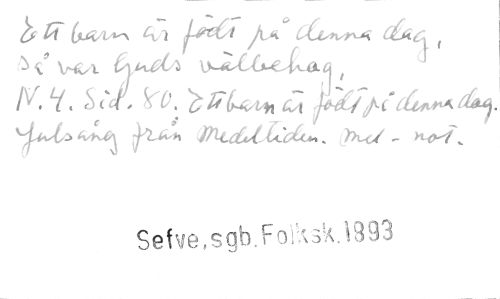 Ett barn är födt på denna dag,
så var Guds välbehag,
N. 4. Sid. 80. Ett barn är födt på denna dag.
Julsång från Medeltiden. Mel-not.
Sefve, sgb. Folksk. 1893